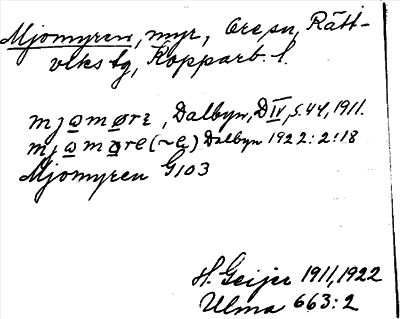 Mjomyren, myr, Ore sn, Rätt-
viks tg, Kopparb. l.
mjɷmøre, Dalbyn, D IV, s. 44, 1911.
mjɷmøre (~e) Dalbyn 1922: 2: 18
Mjomyren G103
H. Geijer 1911, 1922
Ulma 663: 2